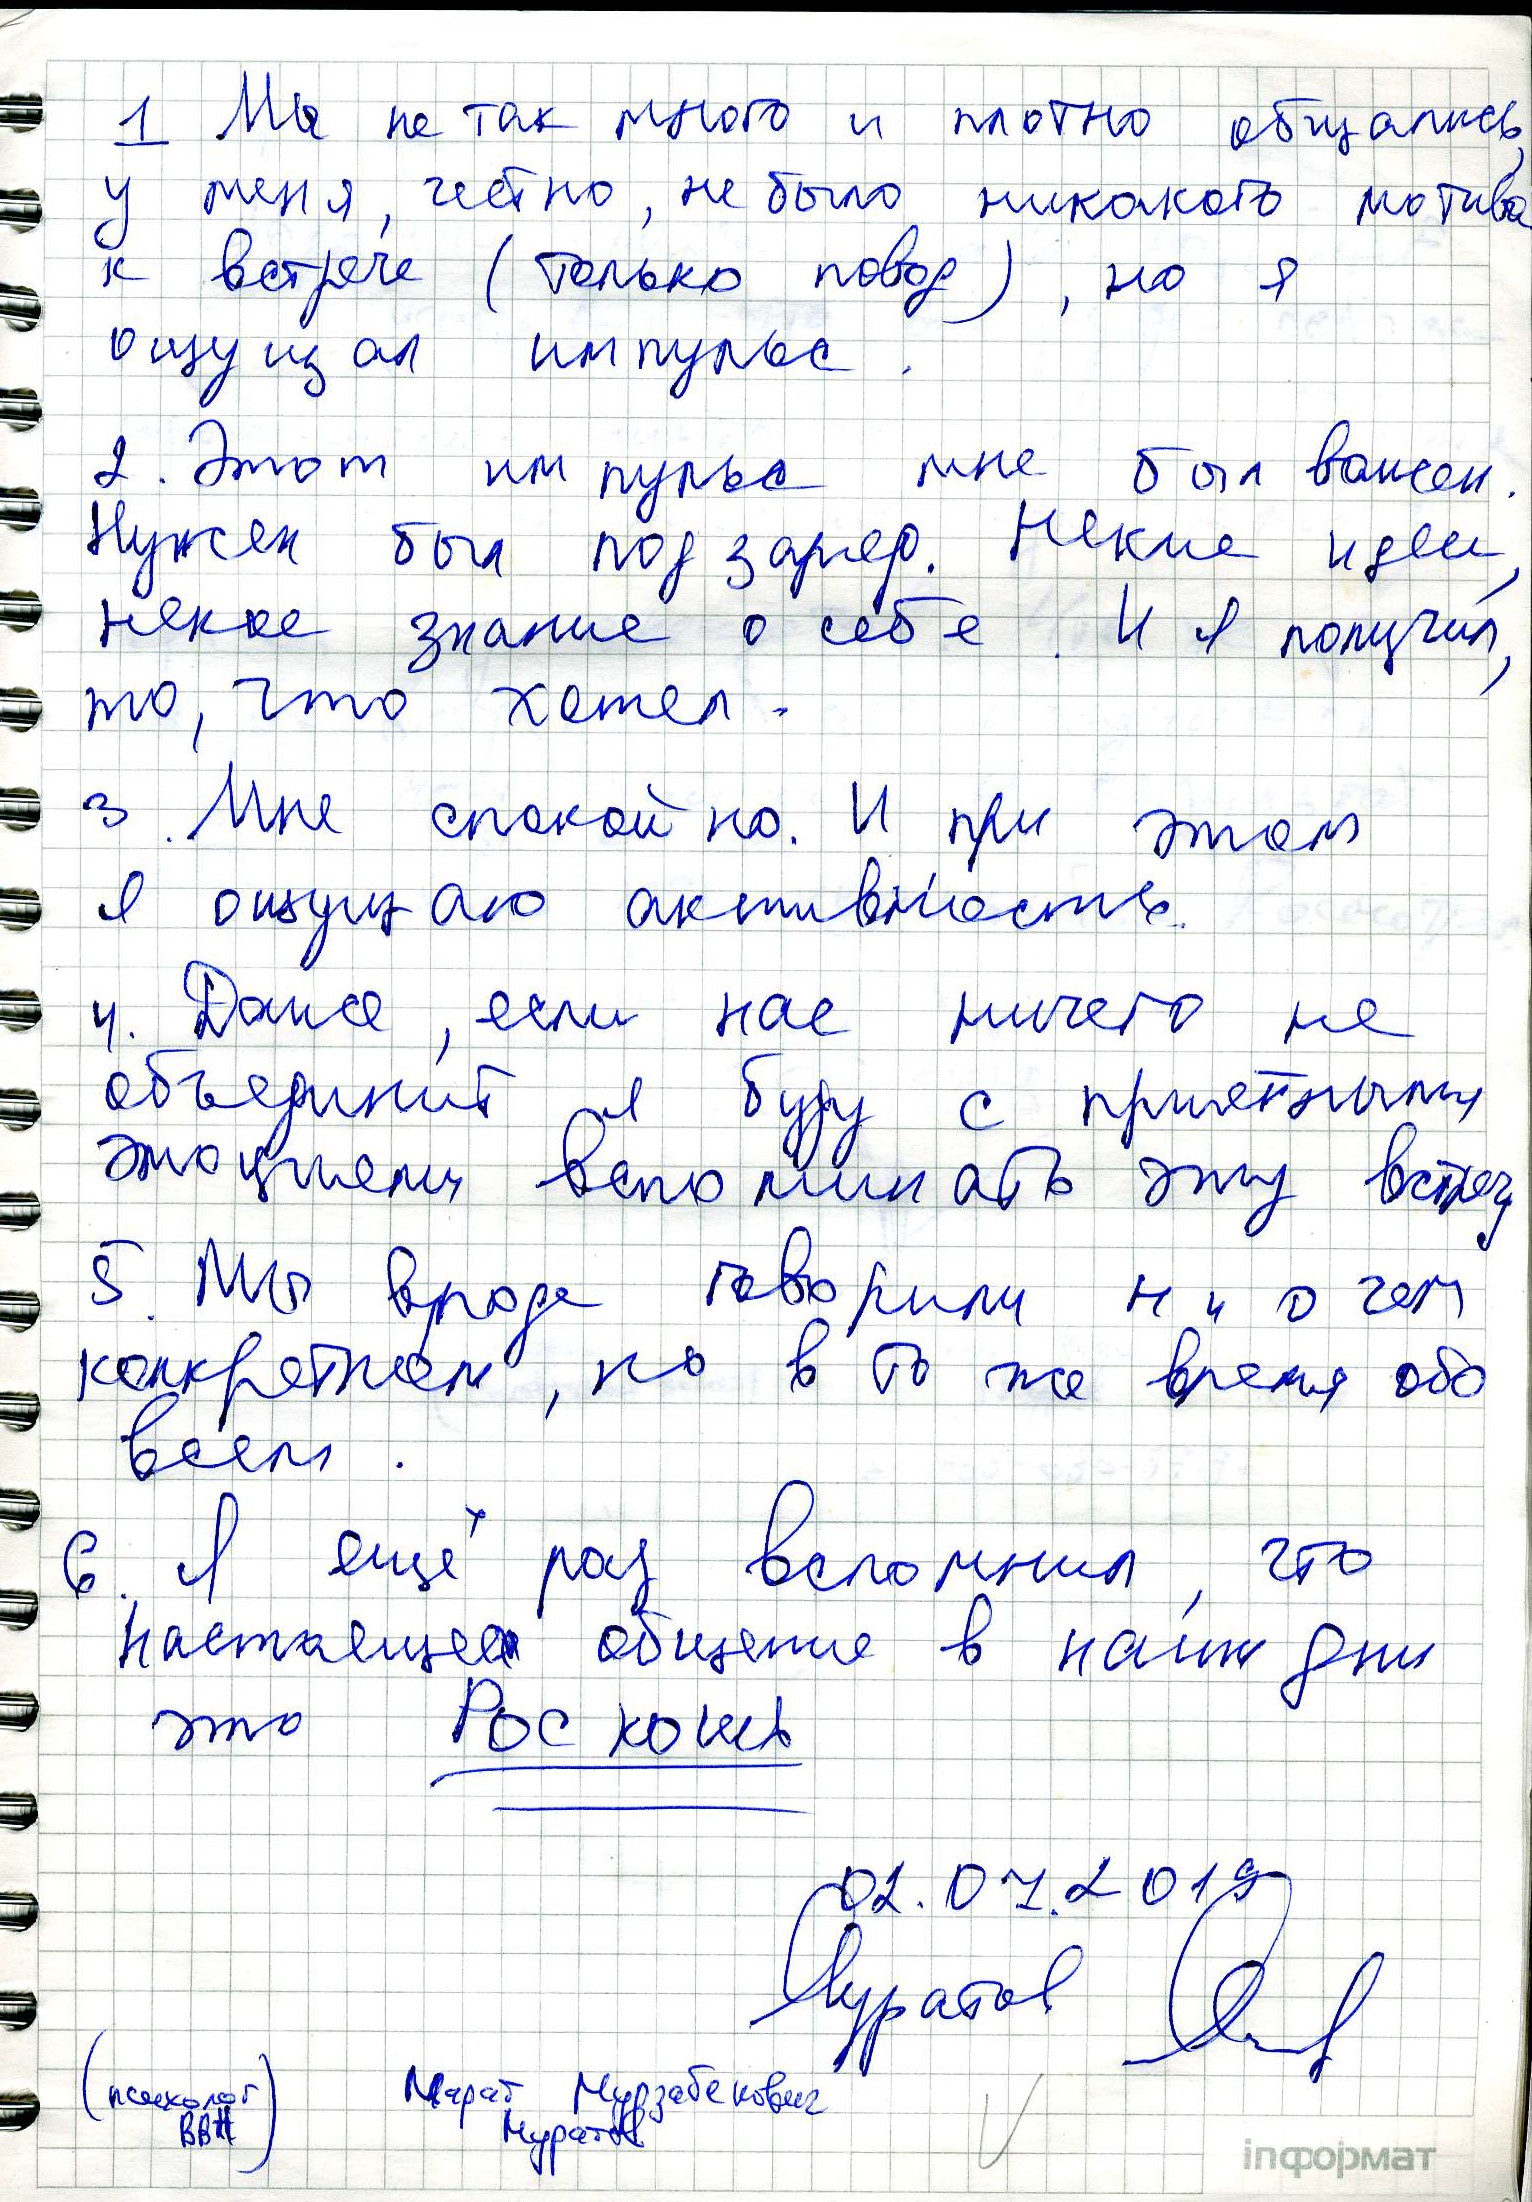 1 Мы не так много и плотно общались,
у меня, честно, не было никакого мотива
к встрече (только повод), но я
ощущал импульс.
2. Этот импульс мне был важен.
Нужен был подзаряд. Некие идеи,
некое знание о себе. И я получил,
то, что хотел.
3. Мне спокойно. И при этом
я ощущаю активность.
4. Даже, если нас ничего не
объединит я буду с приятными
эмоциями вспоминать эту встречу
5. Мы вроде говорили ни о чем
конкретном, но в то же время обо
всем.
6. Я ещё раз вспомнил, что
настоящее общение в наши дни
это Роскошь
02.07.2019
Муратов
(психолог Марат Мурзабекович
ВВН) Муратов
inформат